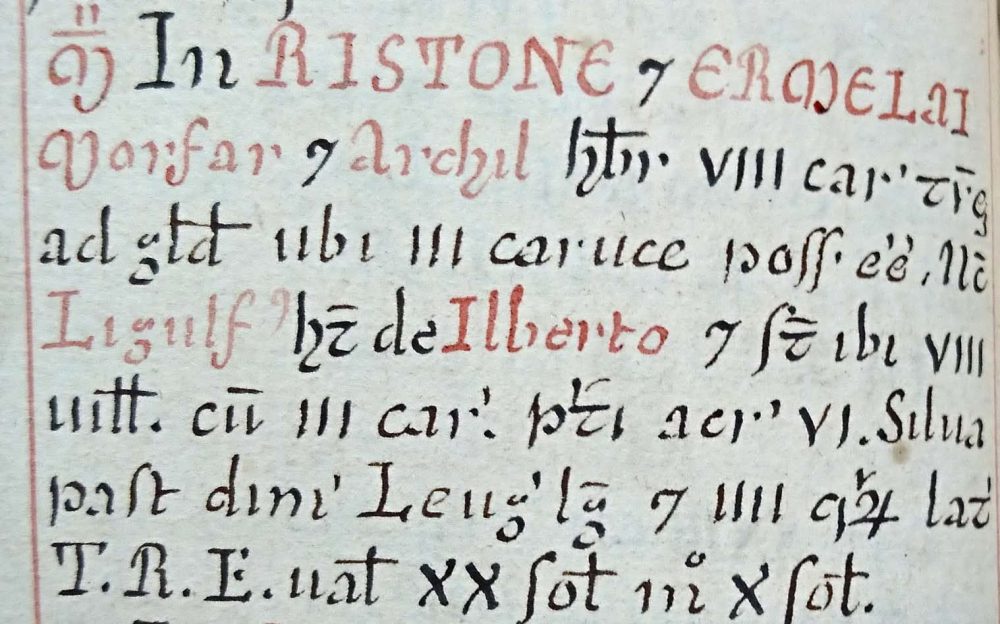 M̄ In RISTONE ⁊ ERMELAI
Morfar ⁊ Archil hƀr VIII car' tr̄ę
ad gld̄ ubi III caruce poss. ee'. Nc̄
Ligulfꝰ ht̄ de Ilberto ⁊ st̄ ibi VIII
uilł. cū III car'. p̄ti acr' VI. Silua
past dim' Leug' lḡ ⁊ IIII qꝝ lat'
T.R.E. uał XX soł m° X soł.